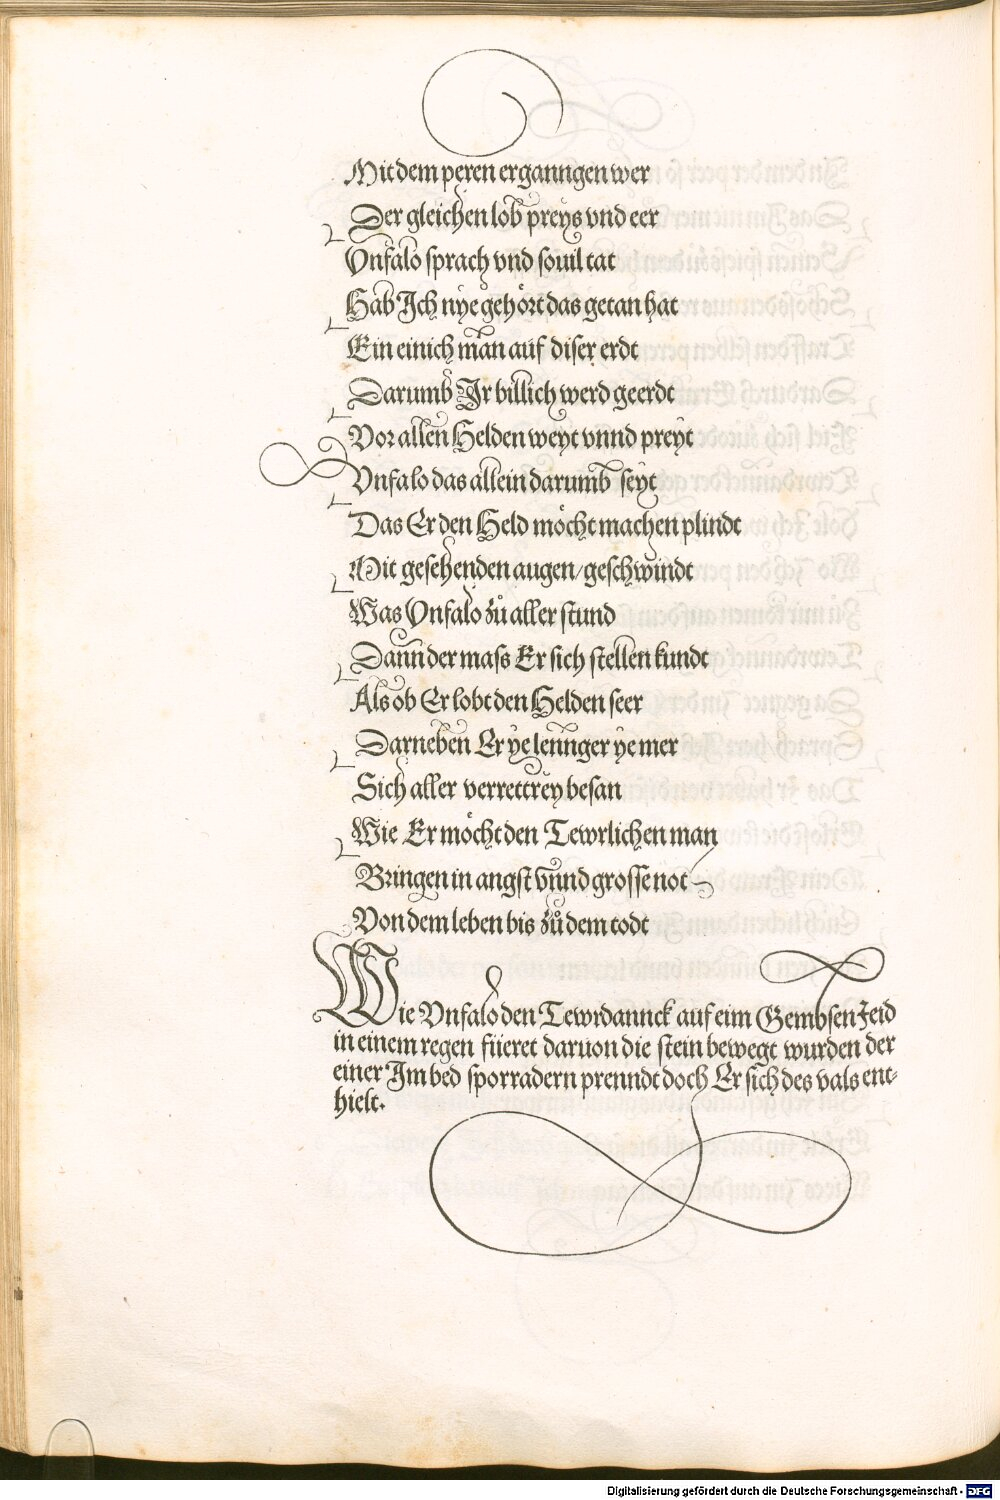 Mit dem peren erganngen wer
Der gleichen lob preys vnd eer
Vnfalo sprach vnd souil tat
Hab Ich nye gehört das getan hat
Ein einich man auf diser erdt
Darumb Ir billich werd geerdt
Vor allen Helden weyt vnnd preyt
Vnfalo das allein darumb seyt
Das Er den Held möcht machen plindt
Mit gesehenden augen/geschwindt
Was Vnfalo zů aller stund
Dann der mass Er sich stellen kundt
Als ob Er lobt den Helden seer
Darneben Er ye lennger ye mer
Sich aller verrettrey besan
Wie Er möcht den Tewrlichen man
Bringen in angst vnnd grosse not
Von dem leben bis zů dem todt
Wie Vnfalo den Tewrdannck auf eim Gembsen Jeid
in einem regen fueret daruon die stein bewegt wurden der
einer Im bed sporradern prenndt doch Er sich des vals ent-
hielt.
Digitalisierung gefördert durch die Deutsche Forschungsgemeinschaft - DFG